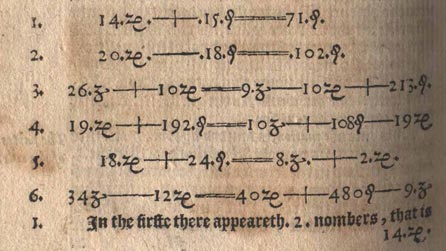 1. 14.ꝛe.—+—.15.ϙ═══71.ϙ.
2. 20.ꝛe.——.18.ϙ═══.102.ϙ.
3. 26.ʒ—+—10ꝛe═══9.ʒ——10ꝛe—+—213.ϙ.
4. 19.ꝛe—+—192.ϙ═══10ʒ—+—108ϙ——19ꝛe
5. 18.ꝛe—+—24.ϙ═══8.ʒ—+—2.ꝛe.
6. 34ʒ——12ꝛe═══40ꝛe—+—480ϙ——9.ʒ
1. In the firſte there appeareth. 2. nombers, that is
14.ꝛe.